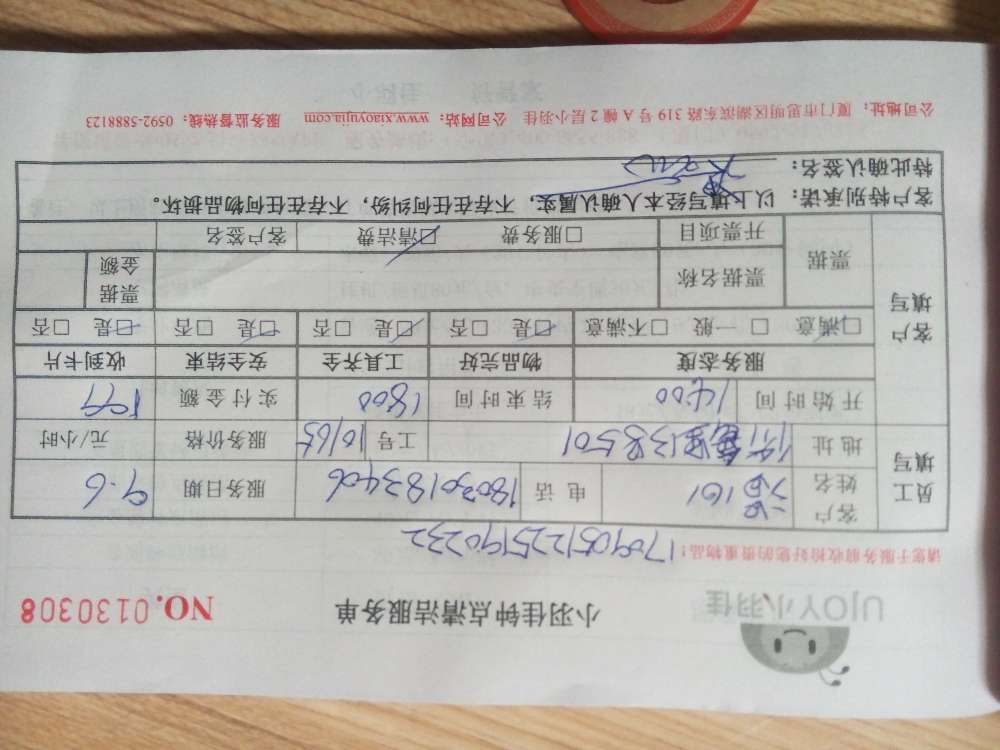 UJOY小羽佳
小羽佳钟点清洁服务单
NO.0130308
请您于服务前收拾好您的贵重物品!
1709051225190232
员工填写
客户姓名
电话 18030183406
服务日期 9.6
地址 138 501
工号 10165
服务价格 元/小时
开始时间 1400
结束时间 1800
实付金额 199
客户填写
服务态度 物品完好 工具齐全 安全结束 收到卡片
□满意 □一般 □不满意 □是 □否 □是 □否 □是 □否 □是 □否
票据
票据名称
票据金额
开票项目 □服务费 □清洁费 客户签名
客户特别承诺: 以上填写经本人确认属实, 不存在任何纠纷, 不存在任何物品损坏。
特此确认签名:
公司地址: 厦门市思明区湖滨东路 319 号 A 幢 2 层小羽佳 公司网站: www.xiaoyujia.com 服务监督热线: 0592-5888123